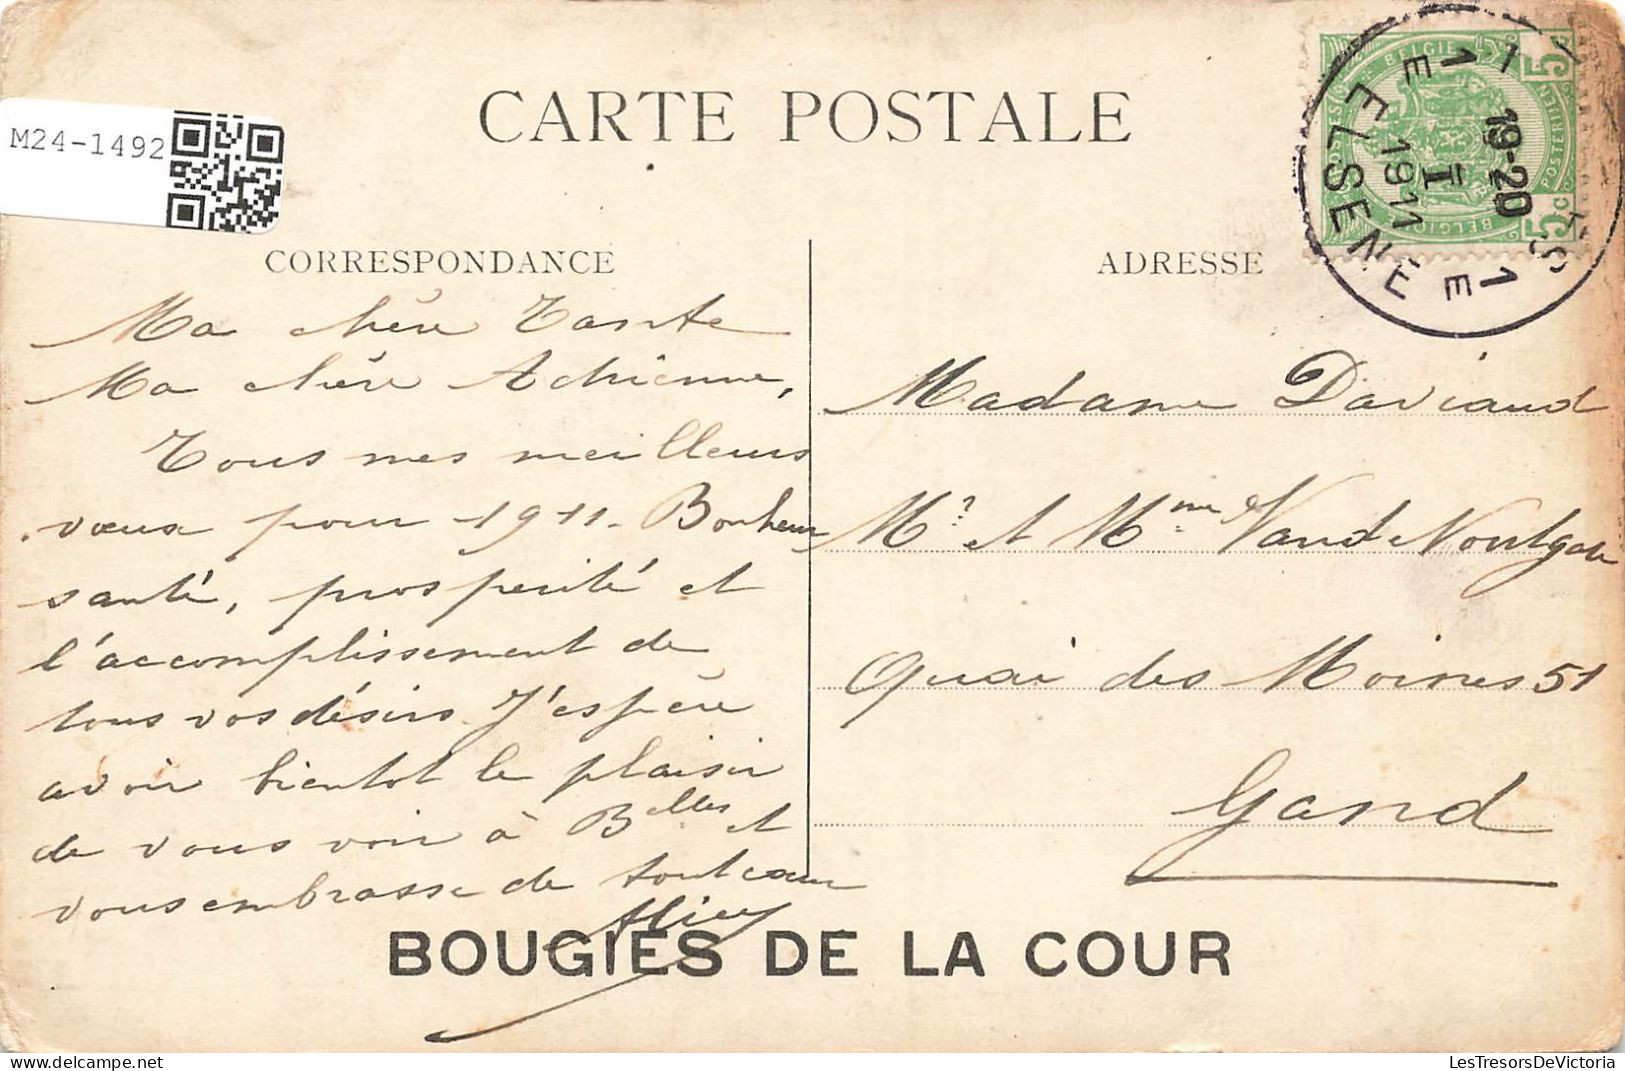 CARTE POSTALE
M24-1492
CORRESPONDANCE
Ma chère Tante
Ma chère Adrienne,
Tous mes meilleurs
vœux pour 1911. Bonheur
santé, prospérité et
l'accomplissement de
tous vos désirs. J'espère
avoir bientot le plaisir
de vous voir à Blles et
vous embrasse de tout cœur
BOUGIES DE LA COUR
ADRESSE
Madame Daviaud
Mr et Mme
Quai des Moines 51
Gand
BELGIE
BELGIQUE
POSTERIJEN
5c
5c
1 E ELSENE E 1
19-20
I
1911
LesTresorsDeVictoria